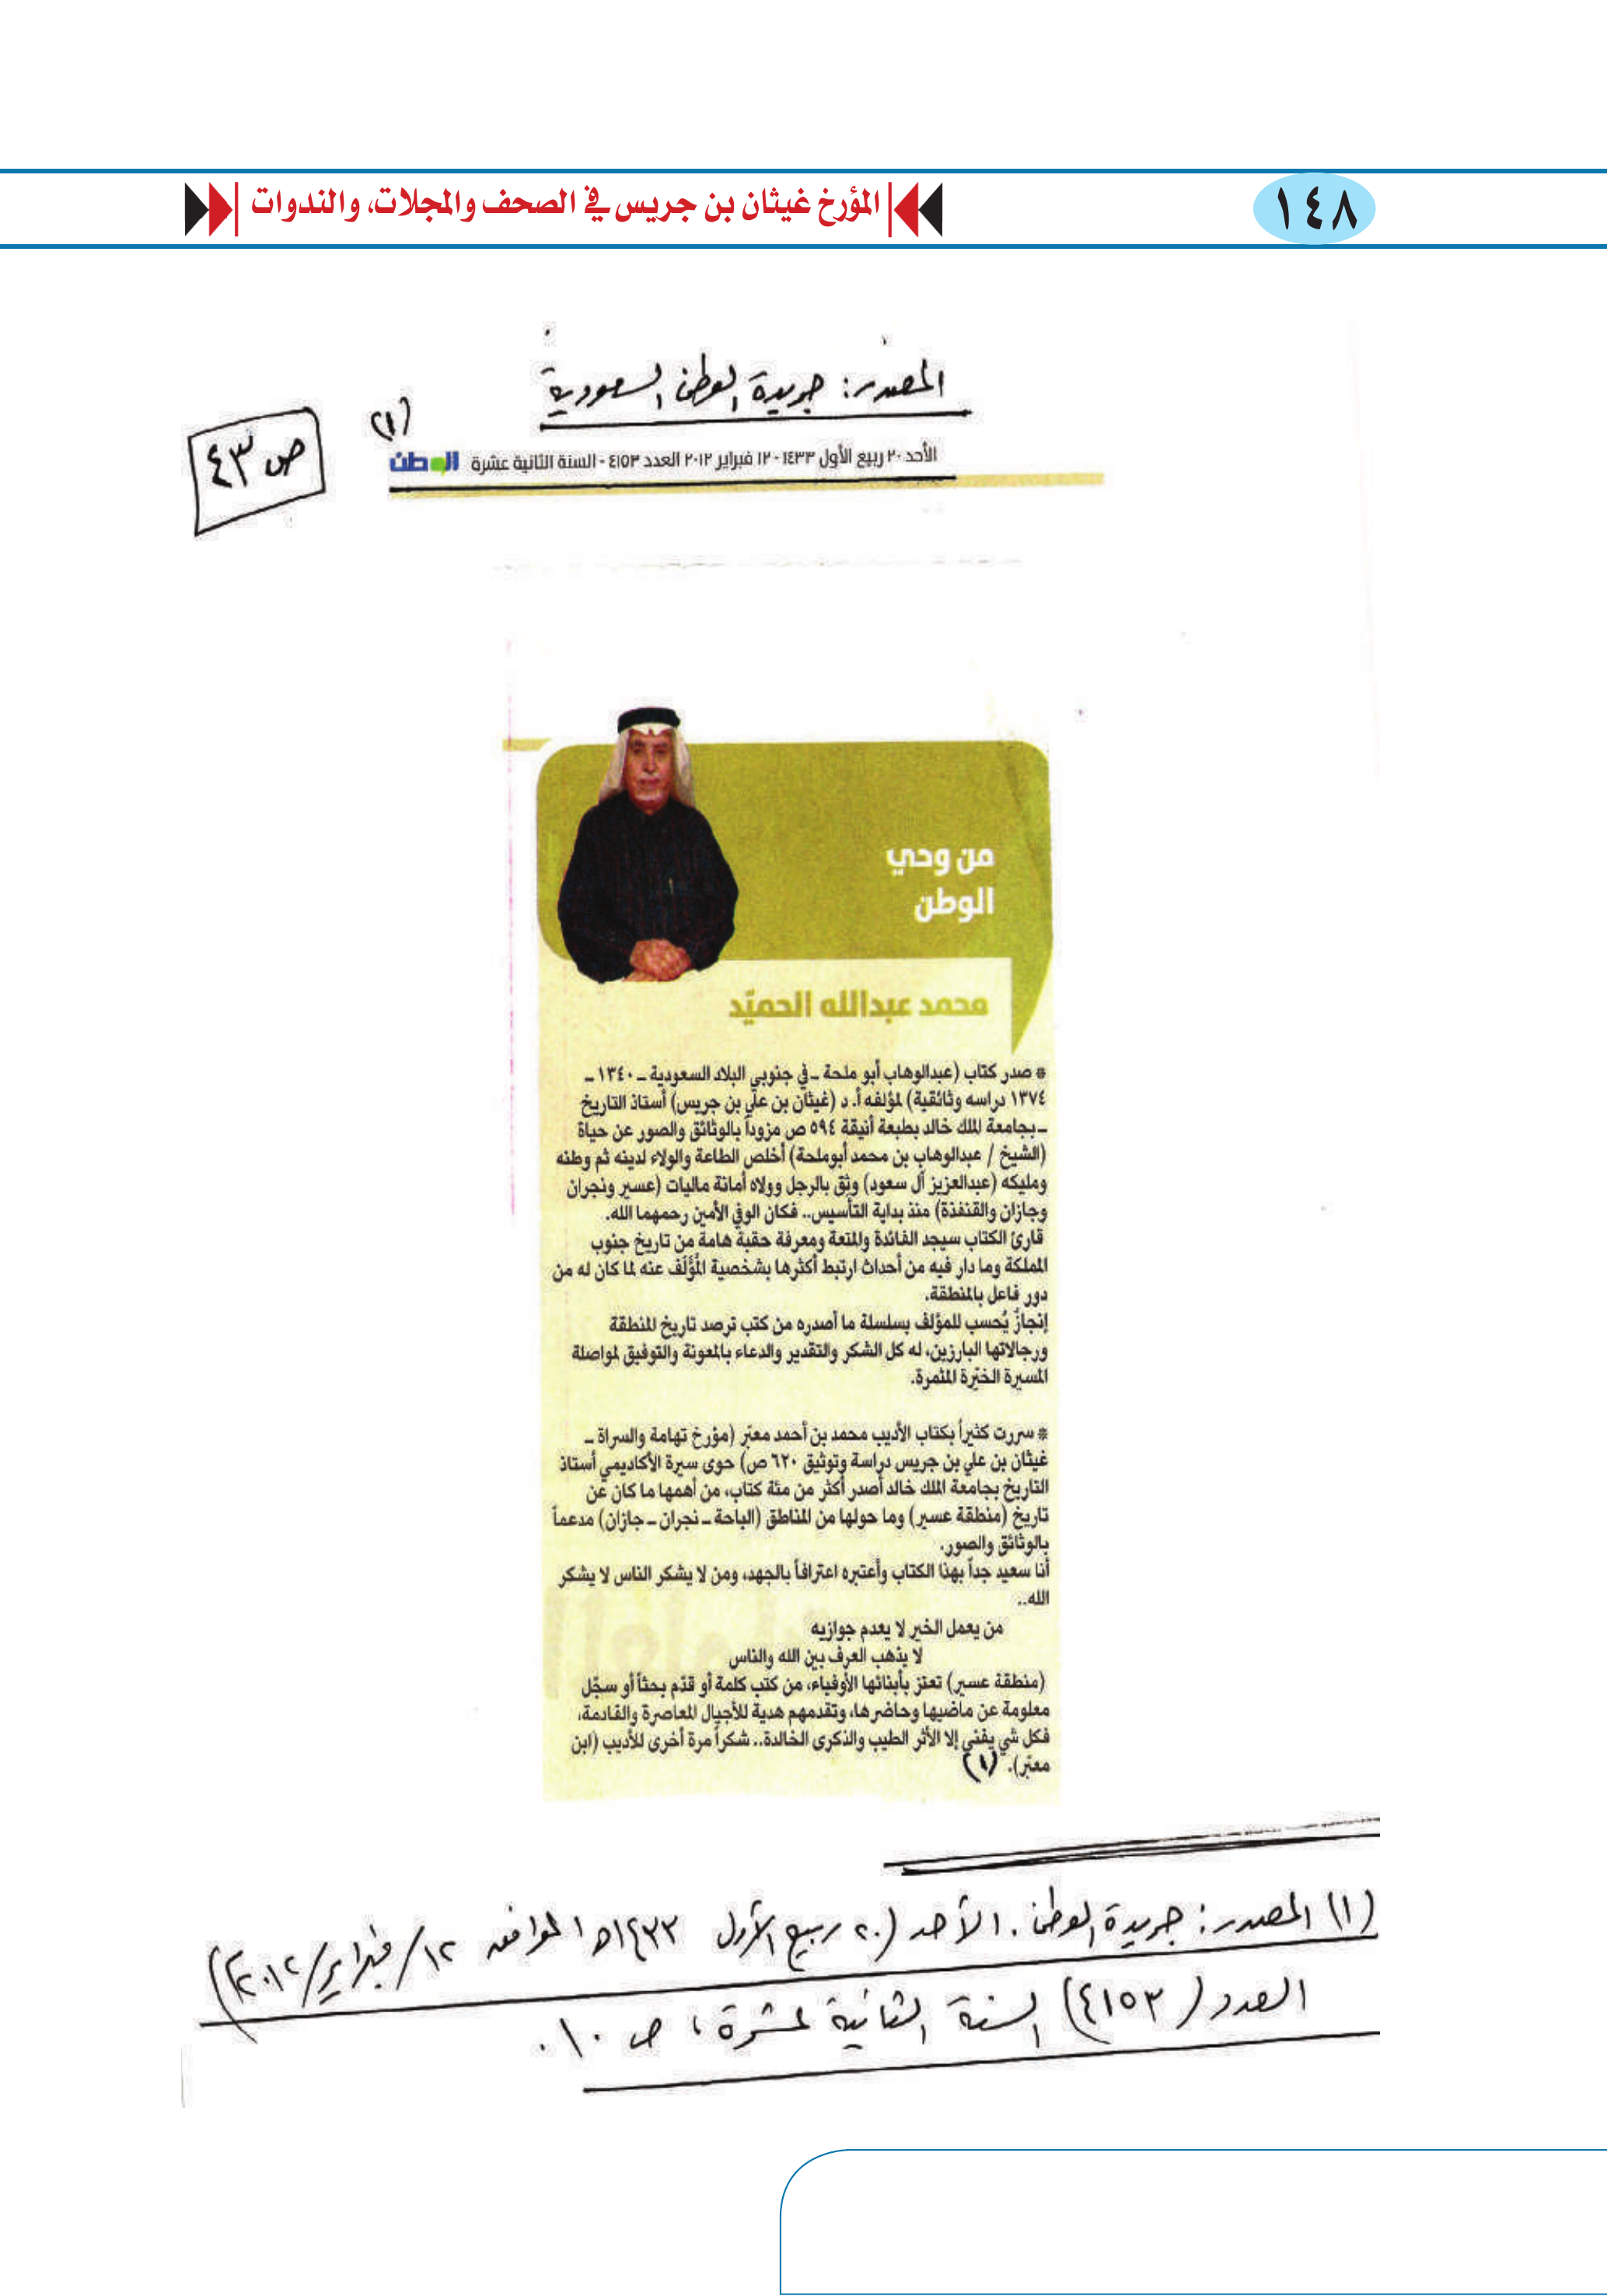 ١٤٨
المؤرخ غيثان بن جريس في الصحف والمجلات، والندوات
المصدر: جريدة الوطن السعودية
(١)
ص ٤٣
الأحد ٢٠ ربيع الأول ١٤٣٣ - ١٢ فبراير ٢٠١٢ العدد ٤١٥٣ - السنة الثانية عشرة الوطن
من وحي
الوطن
محمد عبدالله الحميّد
* صدر كتاب (عبدالوهاب أبو ملحة ـ في جنوبي البلاد السعودية ـ ١٣٤٠ ـ
١٣٧٤ دراسه وثائقية) لمؤلفه أ. د (غيثان بن علي بن جريس) أستاذ التاريخ
ـ بجامعة الملك خالد بطبعة أنيقة ٥٩٤ ص مزوداً بالوثائق والصور عن حياة
(الشيخ / عبدالوهاب بن محمد أبوملحة) أخلص الطاعة والولاء لدينه ثم وطنه
ومليكه (عبدالعزيز آل سعود) وثق بالرجل وولاه أمانة ماليات (عسير ونجران
وجازان والقنفذة) منذ بداية التأسيس.. فكان الوفي الأمين رحمهما الله.
قارئ الكتاب سيجد الفائدة والمتعة ومعرفة حقبة هامة من تاريخ جنوب
المملكة وما دار فيه من أحداث ارتبط أكثرها بشخصية المُؤَلَّف عنه لما كان له من
دور فاعل بالمنطقة.
إنجازٌ يُحسب للمؤلف بسلسلة ما أصدره من كتب ترصد تاريخ المنطقة
ورجالاتها البارزين، له كل الشكر والتقدير والدعاء بالمعونة والتوفيق لمواصلة
المسيرة الخيّرة المثمرة.
* سررت كثيراً بكتاب الأديب محمد بن أحمد معبّر (مؤرخ تهامة والسراة ـ
غيثان بن علي بن جريس دراسة وتوثيق ٦٢٠ ص) حوى سيرة الأكاديمي أستاذ
التاريخ بجامعة الملك خالد أصدر أكثر من مئة كتاب، من أهمها ما كان عن
تاريخ (منطقة عسير) وما حولها من المناطق (الباحة ـ نجران ـ جازان) مدعماً
بالوثائق والصور.
أنا سعيد جداً بهذا الكتاب وأعتبره اعترافاً بالجهد، ومن لا يشكر الناس لا يشكر
الله..
من يعمل الخير لا يعدم جوازيه
لا يذهب العرف بين الله والناس
(منطقة عسير) تعتز بأبنائها الأوفياء، من كتب كلمة أو قدّم بحثاً أو سجّل
معلومة عن ماضيها وحاضرها، وتقدمهم هدية للأجيال المعاصرة والقادمة،
فكل شي يفنى إلا الأثر الطيب والذكرى الخالدة.. شكراً مرة أخرى للأديب (ابن
معبّر). (١)
(١) المصدر: جريدة الوطن. الأحد (٢٠ ربيع الأول ١٤٣٣هـ الموافق ١٢/فبراير/٢٠١٢م)
العدد (٤١٥٣) السنة الثانية عشرة، ص ١٠.